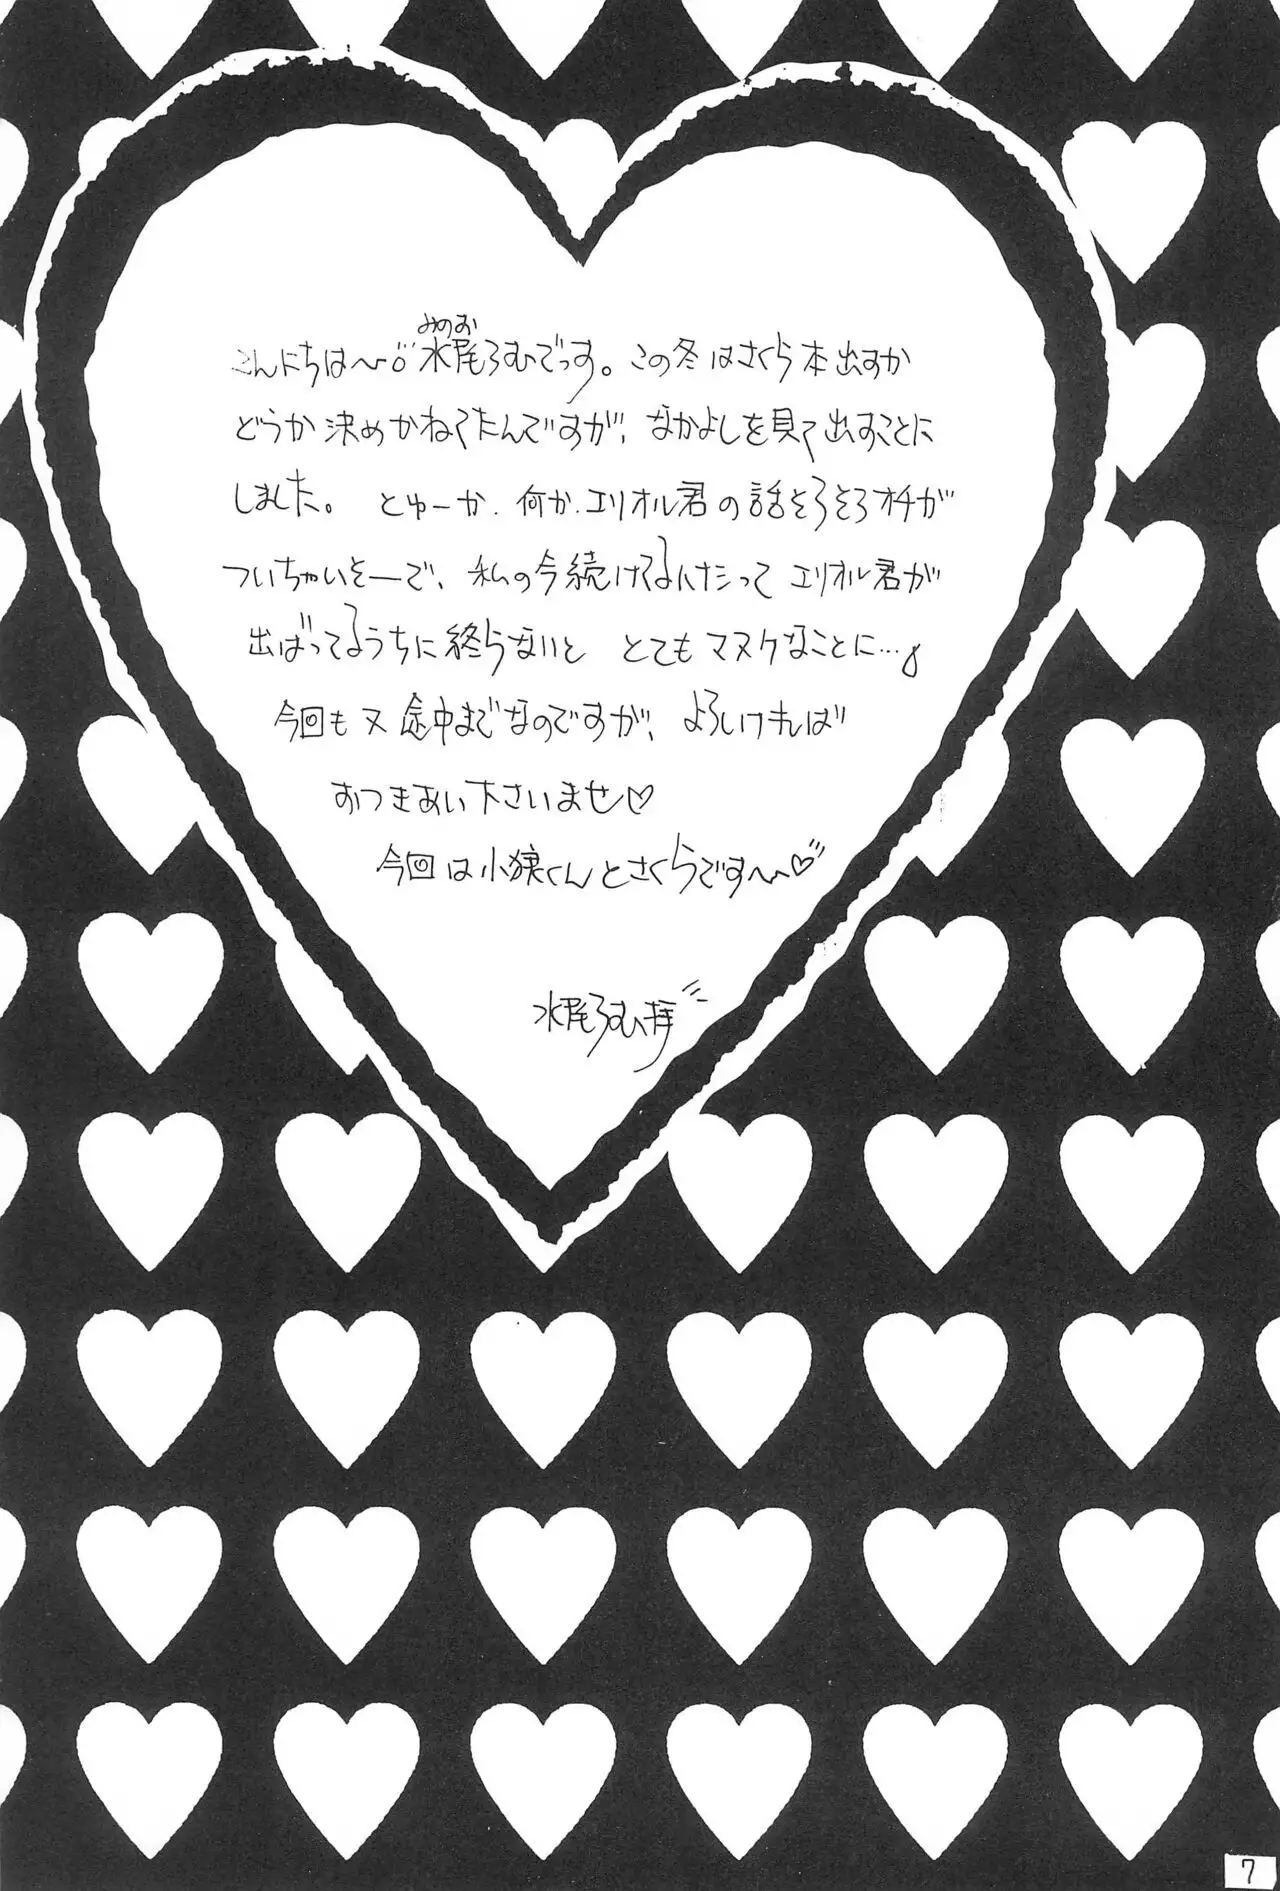 みのお
こんにちは〜♡水尾ろむでっす。この冬はさくら本出すか
どうか決めかねてたんですが、なかよしを見て出すことに
しました。とゅーか、何か、エリオル君の話そろそろオチが
ついちゃいそーで、私の今続けてるんだって エリオル君が
出ばってるうちに終らないと とてもマヌケなことに…
今回も又 途中までなのですが、よろしければ
おつきあい下さいませ♡
今回は小狼くんとさくらです〜♡
水尾ろむ拝
7